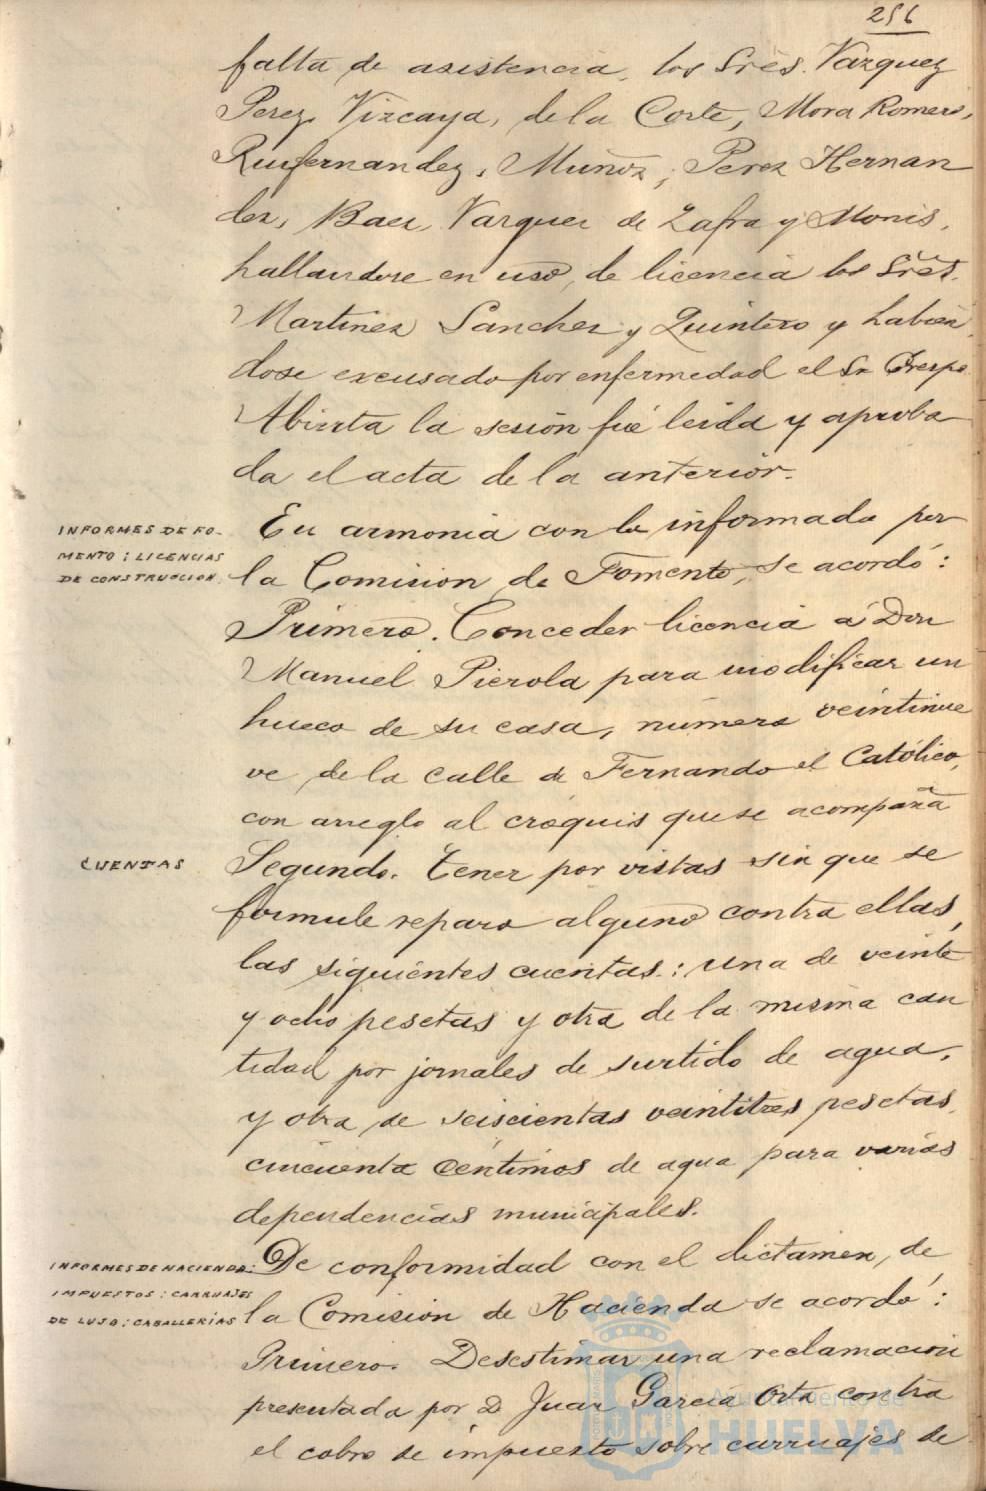 256
falta de asistencia, los Sres. Vazquez
Perez, Vizcaya, de la Corte, Mora Romero,
Ruifernandez, Muñoz, Perez Hernan
dez, Baez, Vazquez de Zafra y Monis,
hallandose en uso de licencia los Sres.
Martinez Sanchez y Quintero y habien
dose excusado por enfermedad el Sr Crespo
Abierta la sesión fué leida y aproba
da el acta de la anterior.
INFORMES DE FO-
MENTO: LICENCIAS
DE CONSTRUCCION
En armonia con lo informado por
la Comision de Fomento, se acordó:
Primero. Conceder licencia á Don
Manuel Pierola para modificar un
hueco de su casa, número veintinue
ve de la calle de Fernando el Católico,
con arreglo al cróquis que se acompaña
CUENTAS
Segundo. Tener por vistas sin que se
formule reparo alguno contra ellas,
las siguientes cuentas: una de veinte
y ocho pesetas y otra de la misma can
tidad por jornales de surtido de agua,
y otra de seiscientas veintitres pesetas
cincuenta céntimos de agua para varias
dependencias municipales.
INFORMES DE HACIENDA:
IMPUESTOS: CARRUAJES
DE LUJO: CABALLERIAS
De conformidad con el dictamen de
la Comision de Hacienda se acordó:
Primero. Desestimar una reclamacion
presentada por D Juan García Orta contra
el cobro de impuesto sobre carruajes de
Ayuntamiento de
HUELVA